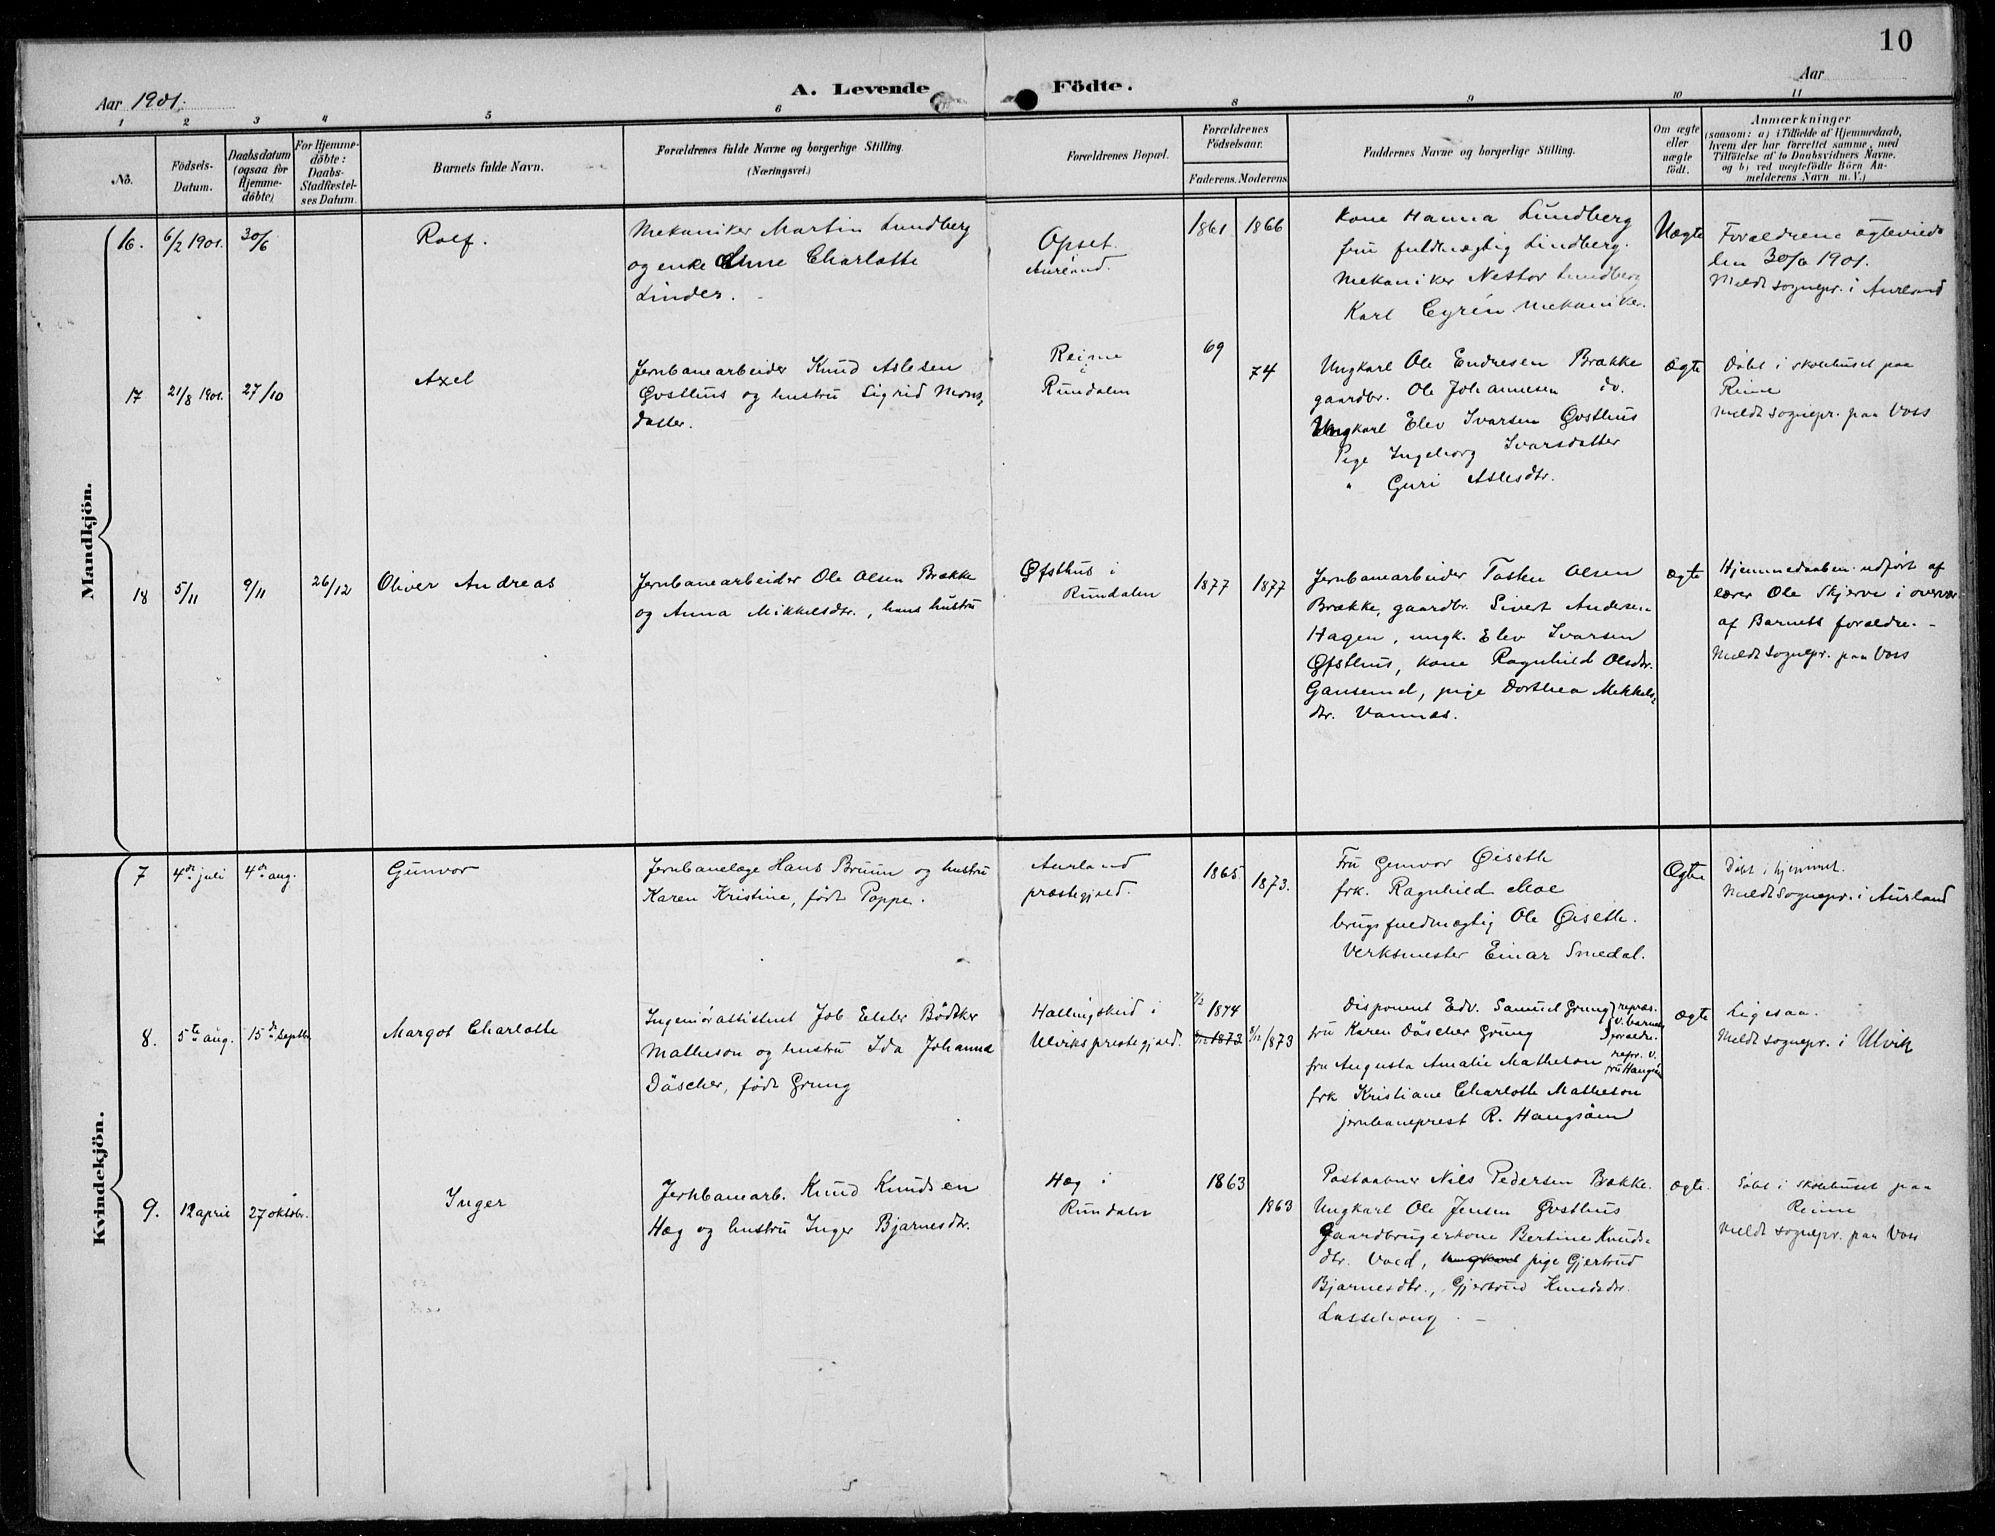 10
Aar 1901.
A. Levende Födte.
Aar
1 2 3 4 5 6 8 9 10 11
No.
Födsels-Datum.
Daabsdatum (ogsaa for Hjemme-döbte)
For Hjemme-döbte: Daabs-Stadfæstel-ses Datum.
Barnets fulde Navn.
Forældrenes fulde Navne og borgerlige Stilling.
(Næringsvei.)
Forældrenes Bopæl.
Forældrenes Födselsaar.
Faderens. Moderens
Faddernes Navne og borgerlige Stilling.
Om ægte eller uægte födt.
Anmærkninger
(saasom: a) i Tilfælde af Hjemmedaab,
hvem der har forrettet samme, med
Tilföielse af to Daabsvidners Navne.
og b) ved uægtefödte Börn An-
melderens Navn m. V.)
Mandkjön.
16. 6/2 1901. 30/6
Rolf.
Mekaniker Martin Lundberg
og enke Anne Charlotte
Linder.
Opset.
Aurland.
1861 1866
Kone Hanna Lundberg
fru fuldmægtig Lindberg.
Mekaniker Nestor Lundberg
Karl Cyrén Mekaniker.
Uægte
Forældrene ægteviede
den 30/6 1901.
Meldt sognepr. i Aurland
17 21/8 1901. 27/10
Axel
Jernbanearbeider Knud Aslesen
Øvsthus og hustru Sigrid Mons-
datter.
Reime
i
Rundalen
69
74
Ungkarl Ole Endresen Brække
gaardbr. Ole Johannesen do.
Ungkarl Elev Ivarsen Øvsthus
Pige Ingeborg Ivarsdatter
" Guri Aslesdtr.
ægte
Døbt i skolehuset paa
Reime
Meldt sognepr. paa Voss
18 5/11 9/11 26/12
Oliver Andreas
Jernbanearbeider Ole Olsen Brække
og Anna Mikkelsdtr., hans hustru
Øfsthus i
Rundalen
1877 1877
Jernbanearbeider Olsen
Brække, gaardbr. Sivert Andersen
Hagen, ungk. Elev Ivarsen
Øfsthus, kone Ragnhild Olsdtr.
pige Dorthea Mikkels-
dtr.
ægte
Hjemmedaaben udført af
lærer Ole Skjerve i overvær
af Barnets forældre. -
Meldt sognepr. paa Voss
Kvindekjön.
7 4de juli 4de aug.
Gunvor
Jernbanelæge Hans Bruun og hustru
Karen Kristine, født Poppe.
Aurland
præstegjeld.
1865
1873.
Fru Gunvor Øiseth
frk. Ragnhild Moe
brugsfuldmægtig Ole Øiseth.
Verksmester Einar Smedal.
Ægte
Døbt i hjemmet.
Meldt sognepr. i Aurland
8. 5te aug. 15de septbr.
Margot Charlotte
Ingeniørassistent Job Elster Bödtker
Matheson og hustru Ida Johanna
Däscher, født Grung
Hallingskeid i
Ulviks prestegjeld.
7/2 1874
1873
5/12 1873
Disponent Edv. Samuel Grung
fru Karen Däscher Grung
repræs.
v. barnets
forældre.
fru Augusta Amalie Matheson
repr. v.
fru
frk Kristiane Charlotte Matheson
jernbaneprest R.
ægte
Ligesaa.
Meldt sognepr. i Ulvik
9. 12 april 27 oktobr.
Inger
Jernbanearb. Knud Knudsen
Hæg og hustru Inger Bjarnesdtr.
Hæg i
Rundalen
1863
1863
Postaabner Nils Pedersen Brække
Ungkarl Ole Jensen Øvsthus
Gaardbrugerkone Bertine Knuds-
dtr. pige Gjertrud
Bjarnesdtr., Gjertrud Knudsdtr.
ægte.
Døbt i skolehuset paa
Reime
Meldt sognepr. paa Voss